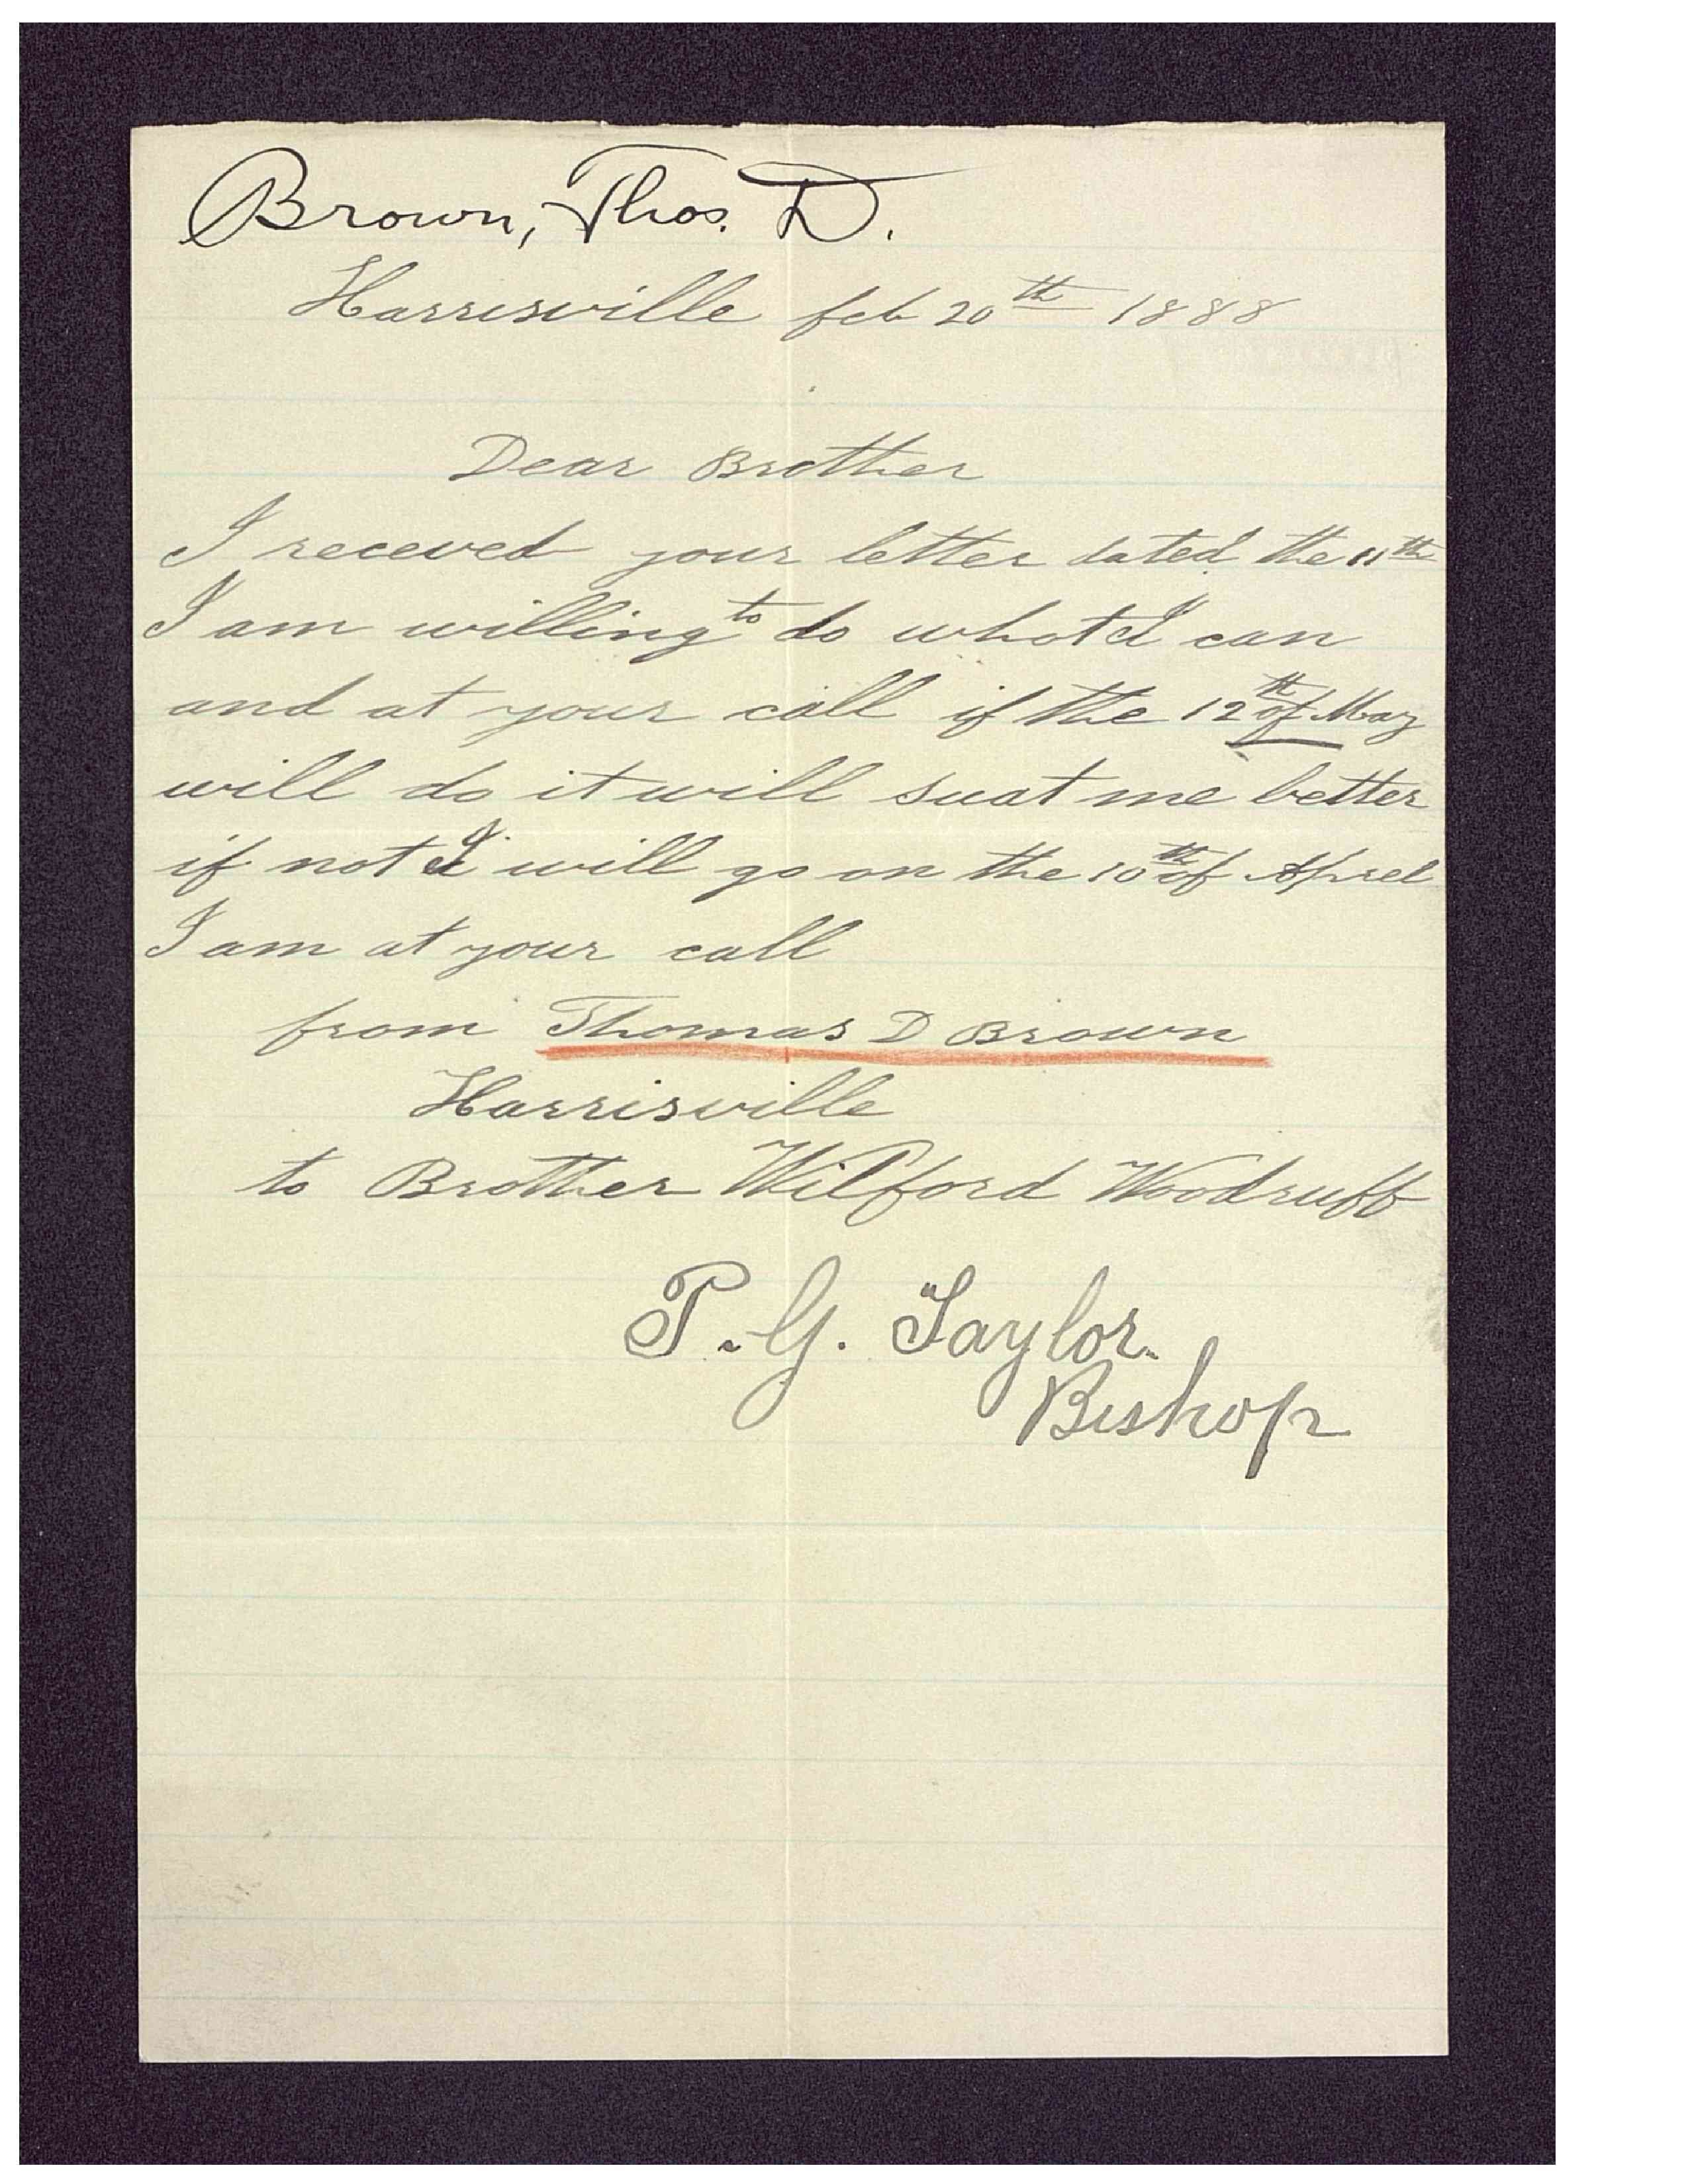 Brown, Thos. D.
Harrisville feb 20th 1888
Dear Brother
I receved your letter dated the 11th
I am willing to do whot I can
and at your call if the 12th of May
will do it will suat me better
if not I will go on the 10th of Aprel
I am at your call
from Thomas D Brown
Harrisville
to Brother Wilford Woodruff
P. G. Taylor
Bishop